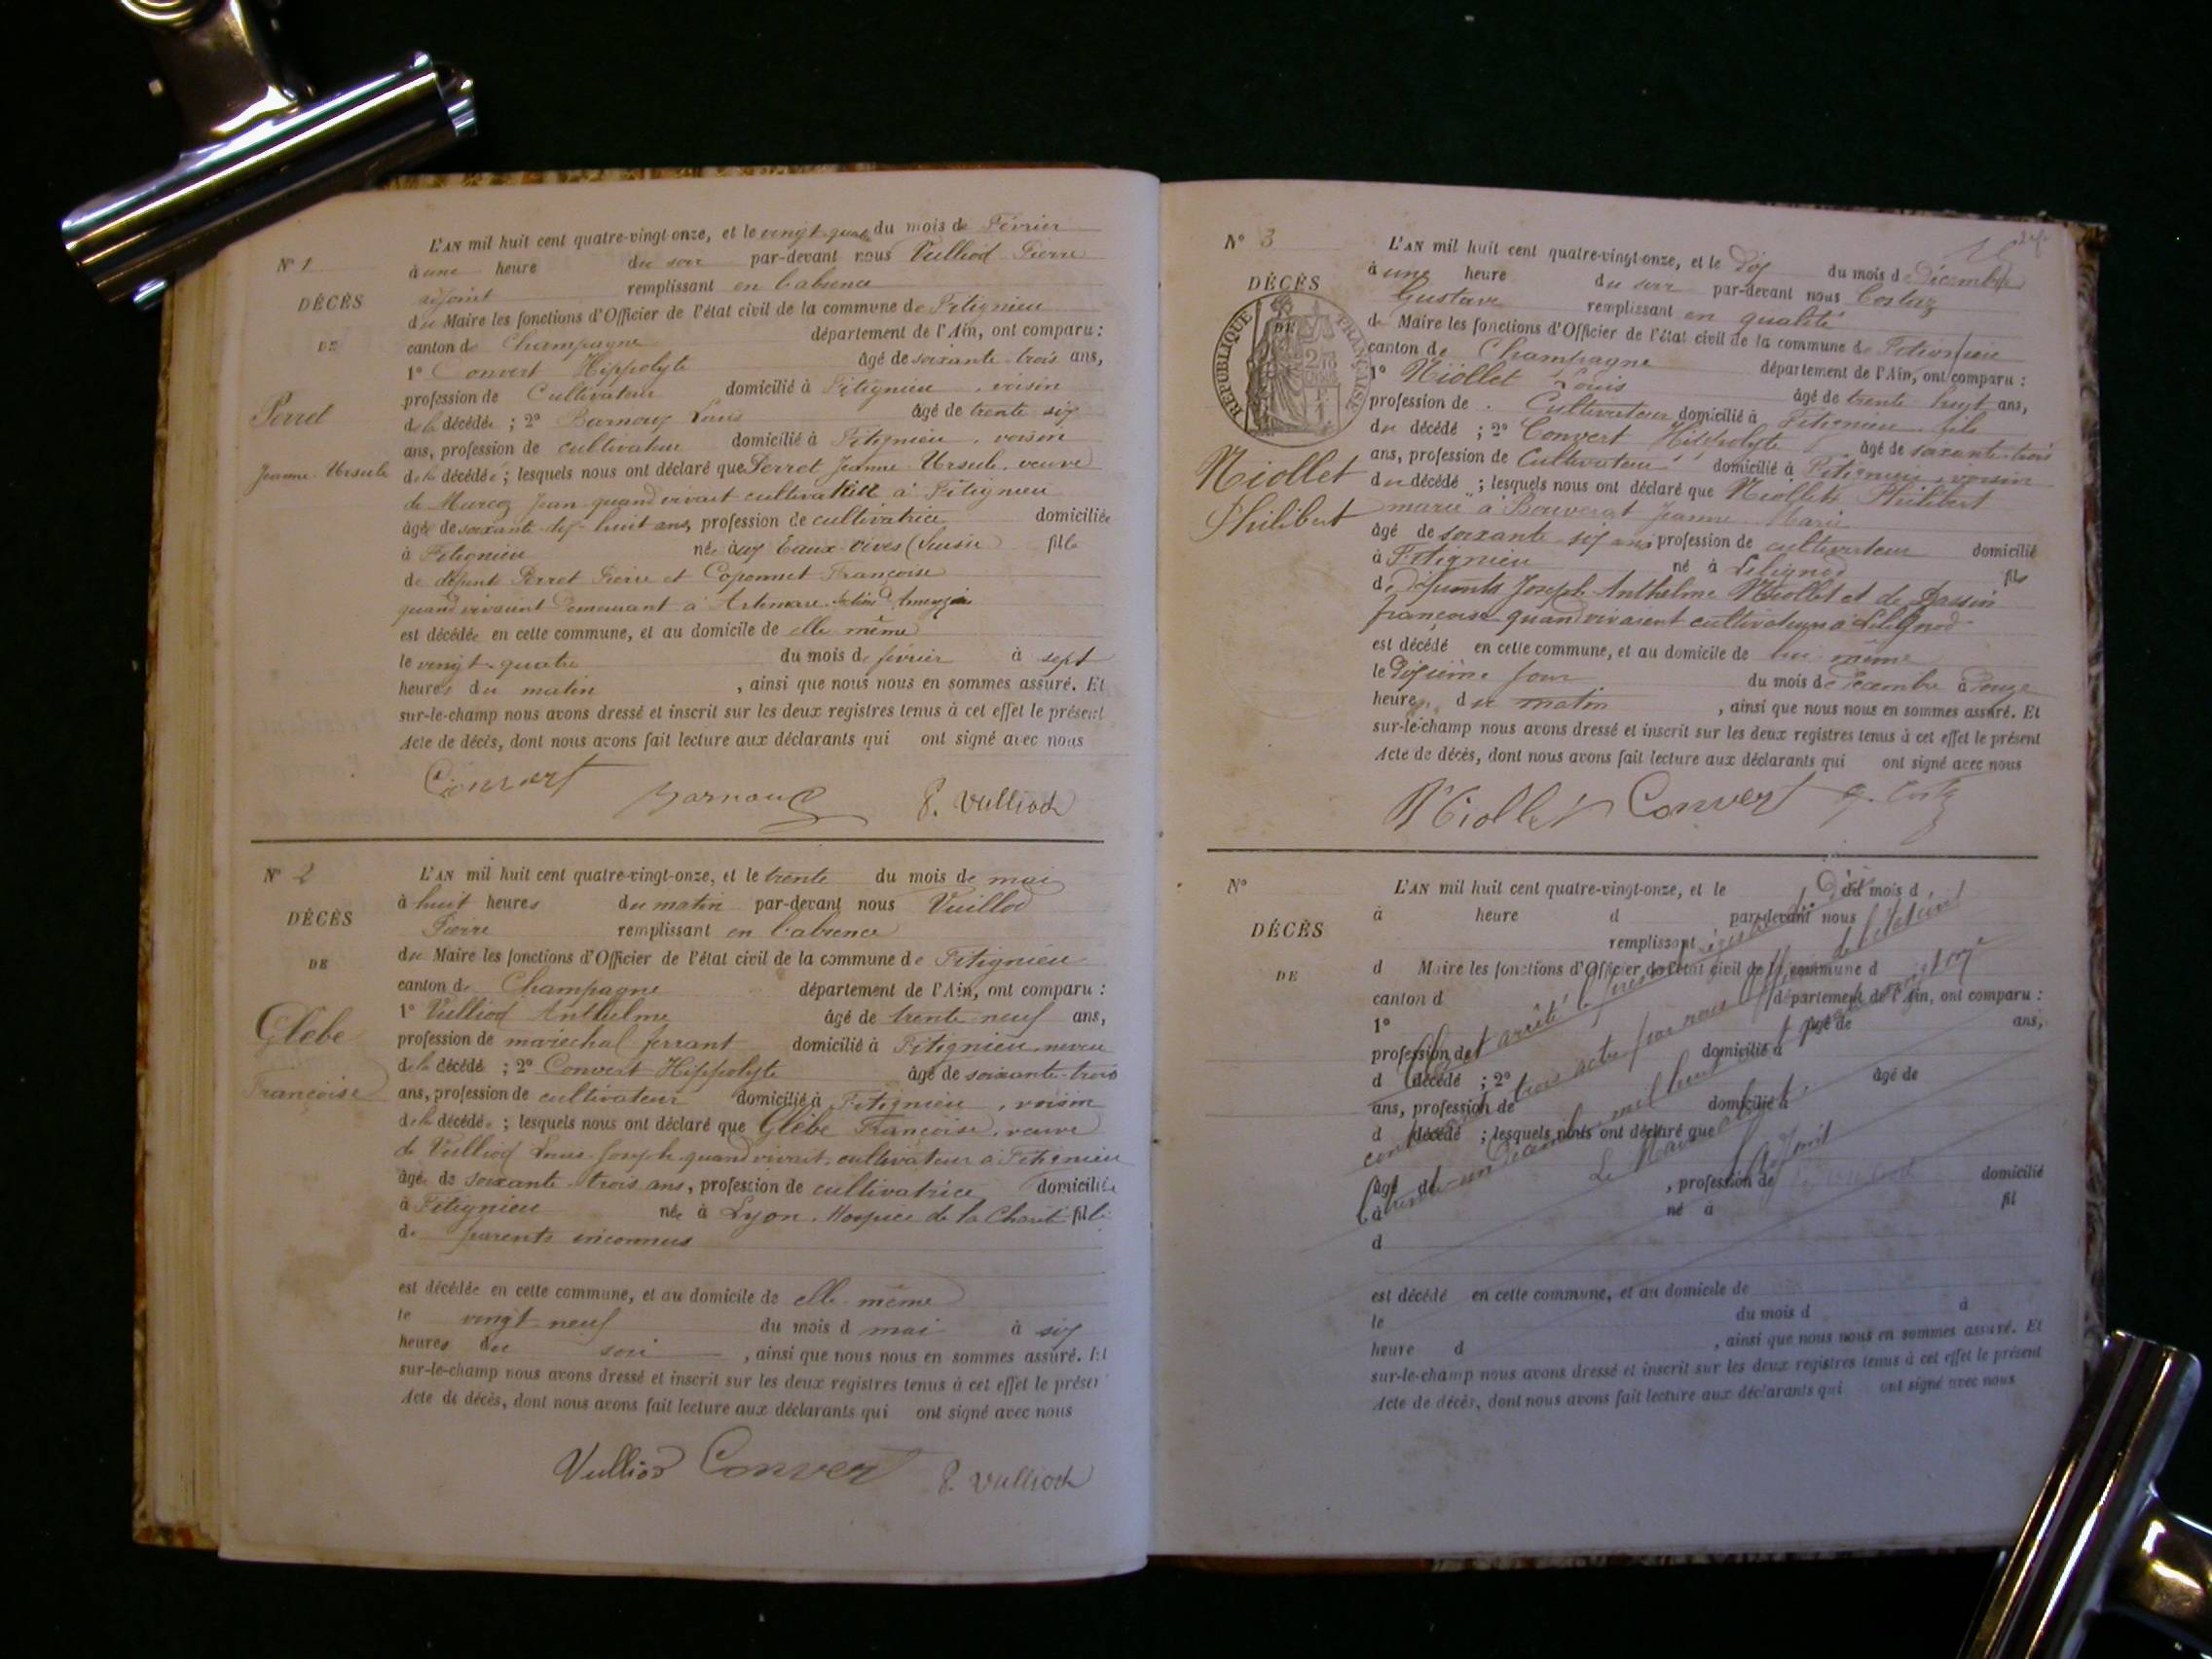 L'AN mil huit cent quatre-vingt-onze, et le vingt quatre du mois de Février
N° 1 à une heure du soir par-devant nous Vulliod Pierre
adjoint remplissant en l'absence
DÉCÈS
du Maire les fonctions d'Officier de l'état civil de la commune de Pitignieu
DE
canton de Champagne département de l'Ain, ont comparu :
1° Convert Hippolyte âgé de soixante-trois ans,
profession de Cultivateur domicilié à Pitignieu, voisin
Perret
de la décédée ; 2° Barnoux Louis âgé de trente six
ans, profession de cultivateur domicilié à Pitignieu, voisin
Jeanne-Ursule
de la décédée ; lesquels nous ont déclaré que Perret Jeanne-Ursule, veuve
de Jean quand vivait cultivateur à Pitignieu
âgée de soixante-dix-huit ans, profession de cultivatrice domiciliée
à Pitignieu née aux Eaux-vives (Suisse fille
de défunts Perret Pierre et Françoise
quand vivaient demeurant à Artemare
est décédée en cette commune, et au domicile de elle même
le vingt-quatre du mois de février à sept
heures du matin , ainsi que nous nous en sommes assuré. Et
sur-le-champ nous avons dressé et inscrit sur les deux registres tenus à cet effet le présent
Acte de décès, dont nous avons fait lecture aux déclarants qui ont signé avec nous
Convert Barnoux P. Vulliod
N° 2 L'AN mil huit cent quatre-vingt-onze, et le trente du mois de mai
à huit heures du matin par-devant nous Vuillod
DÉCÈS
Pierre remplissant en l'absence
DE
du Maire les fonctions d'Officier de l'état civil de la commune de Pitignieu
canton de Champagne département de l'Ain, ont comparu :
1° Vulliod Anthelme âgé de trente neuf ans,
Glèbe
profession de maréchal ferrant domicilié à Pitignieu, neveu
de la décédé ; 2° Convert Hippolyte âgé de soixante-trois
Françoise
ans, profession de cultivateur domicilié à Pitignieu, voisin
de la décédée ; lesquels nous ont déclaré que Glèbe Françoise, veuve
de Vulliod Louis-Joseph quand vivait, cultivateur à Pitignieu
âgée de soixante-trois ans, profession de cultivatrice domiciliée
à Pitignieu née à Lyon, Hospice de la Charité fille
de parents inconnus
est décédée en cette commune, et au domicile de elle-même
le vingt-neuf du mois d mai à six
heures du soir , ainsi que nous nous en sommes assuré. Et
sur-le-champ nous avons dressé et inscrit sur les deux registres tenus à cet effet le présent
Acte de décès, dont nous avons fait lecture aux déclarants qui ont signé avec nous
Vulliod Convert P. Vulliod
N° 3 L'AN mil huit cent quatre-vingt-onze, et le Dix du mois de Décembre
à une heure du soir par-devant nous Costaz
DÉCÈS
Gustave remplissant en qualité
DE
RÉPUBLIQUE FRANÇAISE
de Maire les fonctions d'Officier de l'état civil de la commune de Pitignieu
canton de Champagne département de l'Ain, ont comparu :
1° Niollet Louis âgé de trente huit ans,
profession de Cultivateur domicilié à Pitignieu, fils
du décédé ; 2° Convert Hippolyte âgé de soixante-trois
Niollet
ans, profession de Cultivateur domicilié à Pitignieu, voisin
du décédé ; lesquels nous ont déclaré que Niollet Philibert
Philibert
marié à Bouverat Jeanne-Marie
âgé de soixante-six ans profession de cultivateur domicilié
à Pitignieu né à Lilignod fils
de Défunts Joseph-Anthelme Niollet et de Dassin
françoise quand vivaient cultivateurs à Lilignod
est décédé en cette commune, et au domicile de lui-même
le Dixième jour du mois de Décembre à Douze
heures du matin , ainsi que nous nous en sommes assuré. Et
sur-le-champ nous avons dressé et inscrit sur les deux registres tenus à cet effet le présent
Acte de décès, dont nous avons fait lecture aux déclarants qui ont signé avec nous
Niollet Convert
N° L'AN mil huit cent quatre-vingt-onze, et le du mois d
à heure d par-devant nous
DÉCÈS
remplissant
DE
d Maire les fonctions d'Officier de l'état civil de la commune d
canton d département de l'Ain, ont comparu :
1° âgé de ans,
profession de domicilié à
d décédé ; 2° âgé de
ans, profession de domicilié à
d décédé ; lesquels nous ont déclaré que
âgé de , profession de domicilié
à né à fil
d
est décédé en cette commune, et au domicile de
le du mois d à
heure d , ainsi que nous nous en sommes assuré. Et
sur-le-champ nous avons dressé et inscrit sur les deux registres tenus à cet effet le présent
Acte de décès, dont nous avons fait lecture aux déclarants qui ont signé avec nous
arrêté le présent registre de Décès
trois actes par nous Officier de l'état civil
trente-un Décembre mil huit cent quatre vingt onze
Le Maire